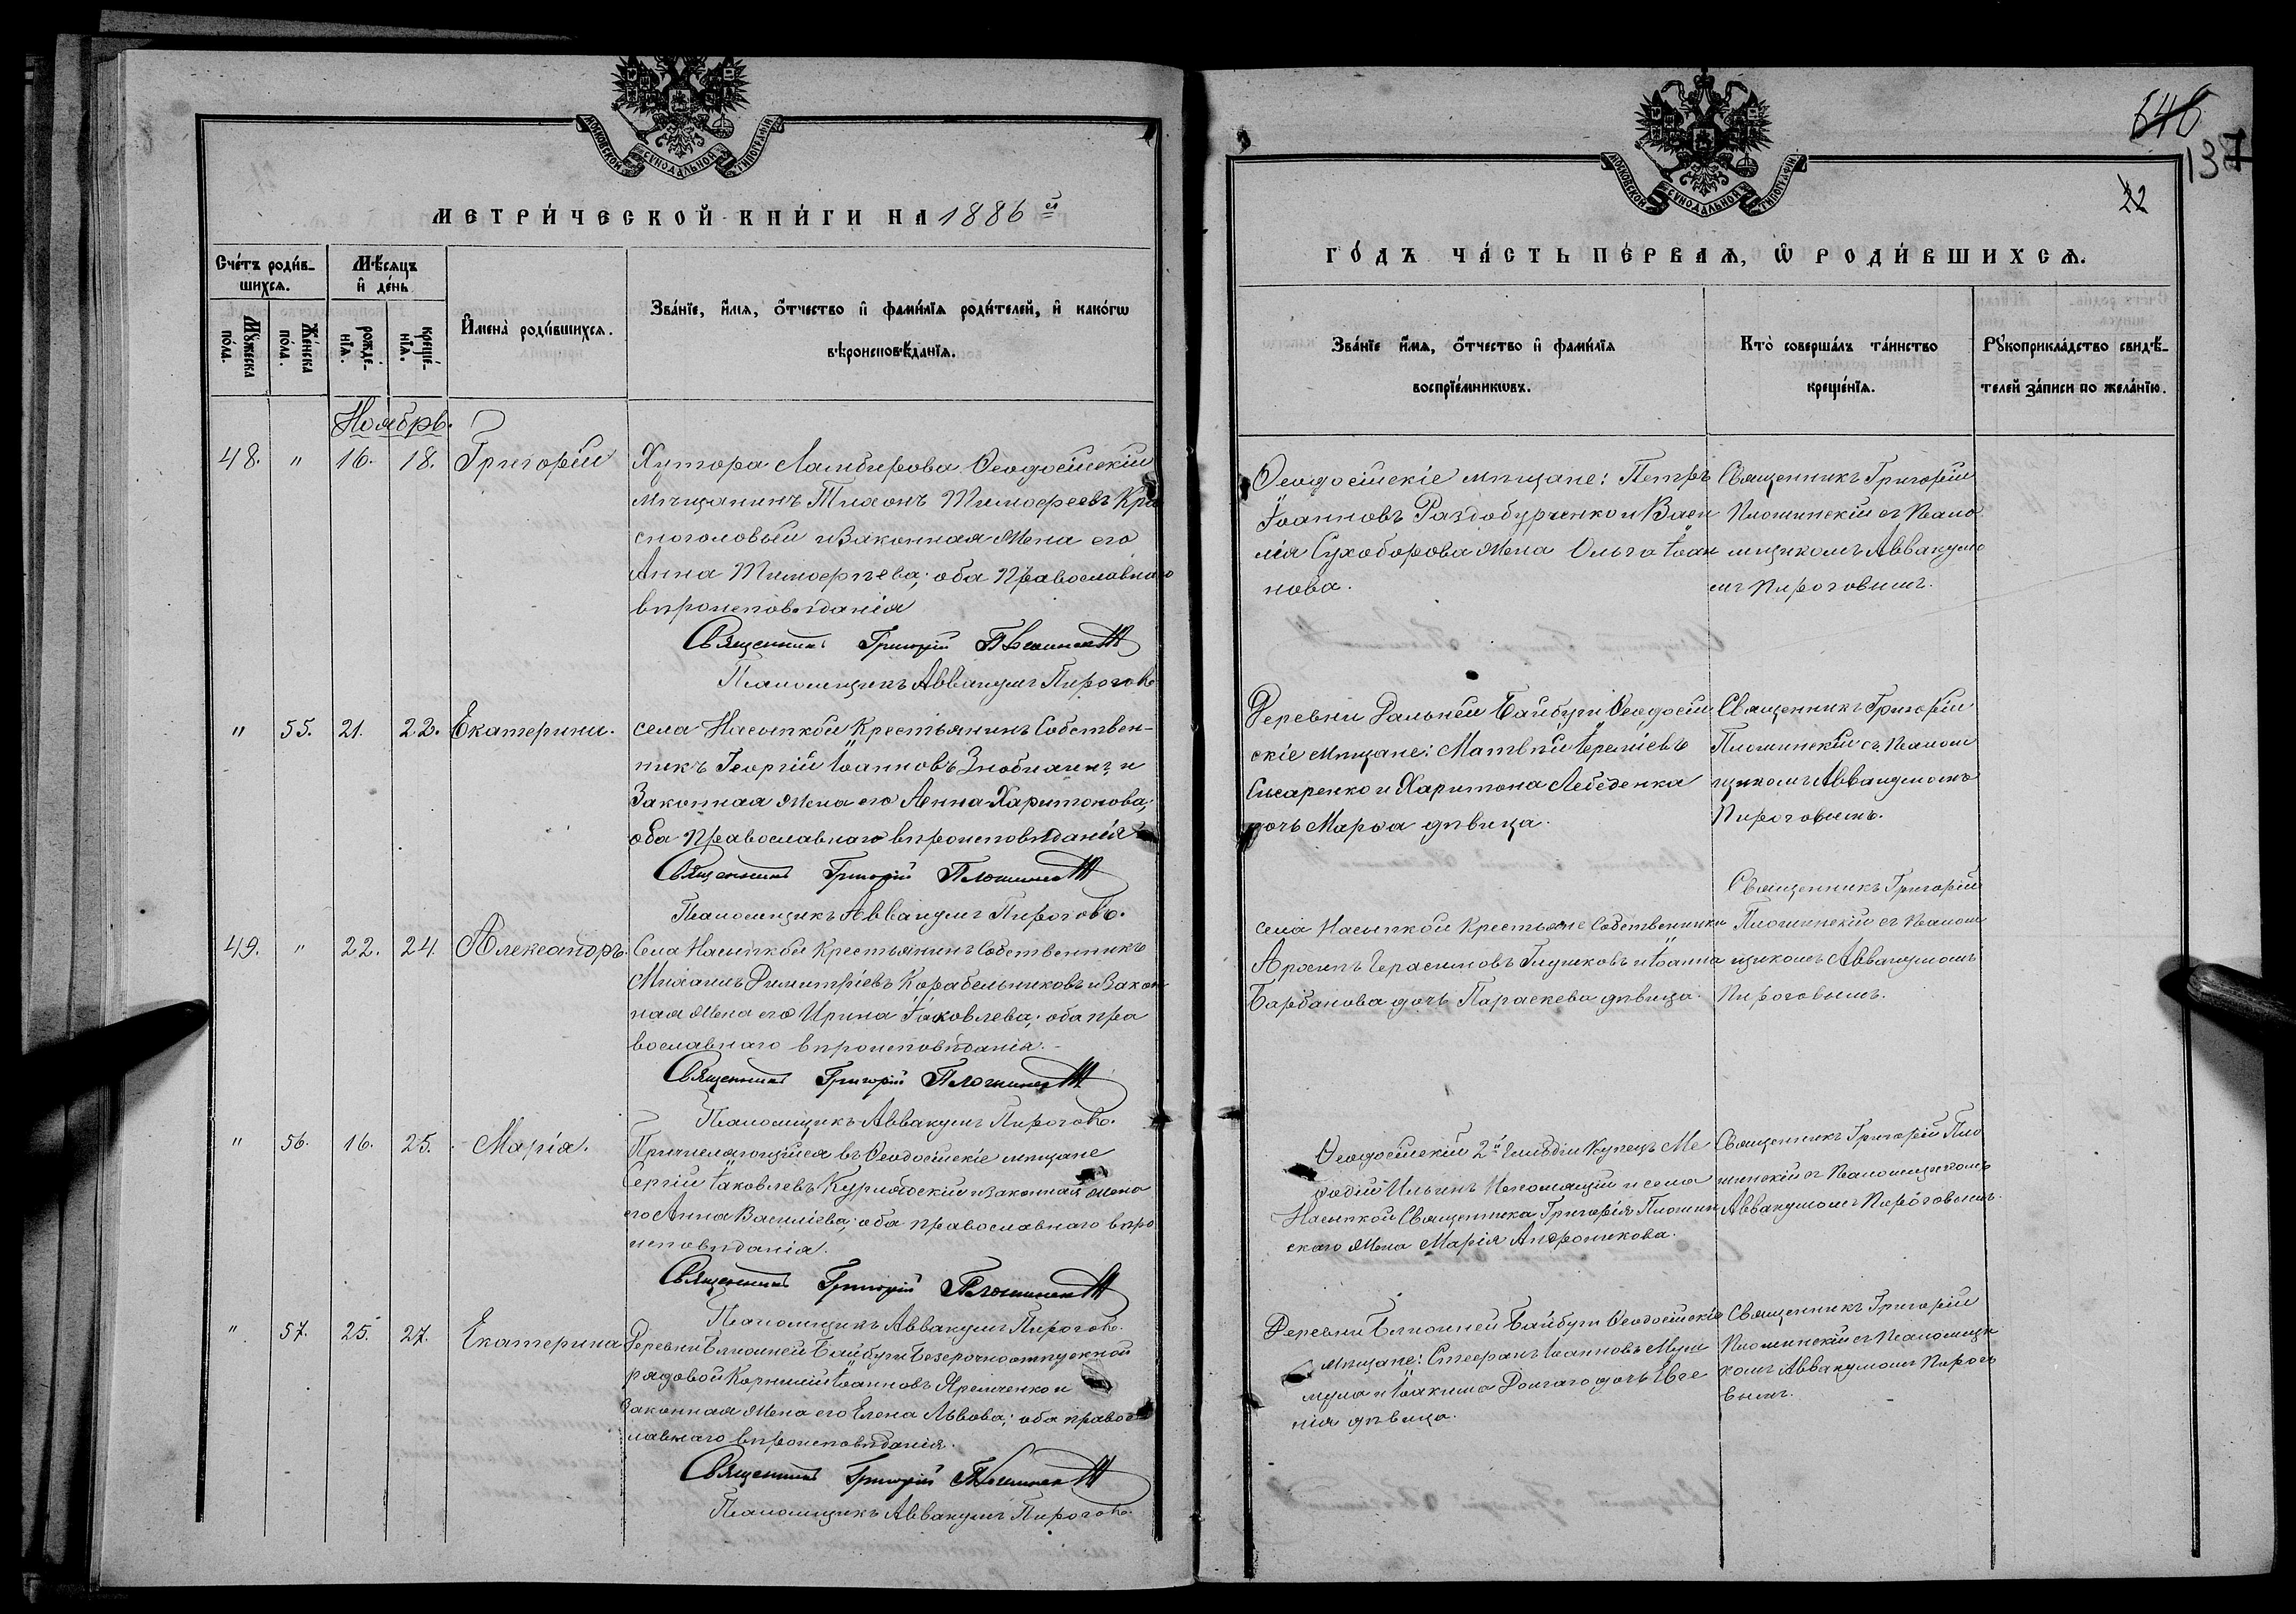 МОСКОВСКОЙ СѴНОДАЛЬНОЙ ТИПОГРАФІИ
МЕТРИ́ЧЕСКОЙ КНИ́ГИ НА 1886 й
Сче́тъ роди́в-
шихсѧ.
Мѣ́сѧцъ
и҆ де́нь
Мꙋ́жеска
по́ла.
Же́нска
по́ла.
рожде́-
нїѧ.
креще́-
нїѧ.
И҆мена̀ роди́вшихсѧ.
Зва́нїе, и҆́мѧ, ѻ҆́тчество и҆ фами́лїѧ роди́телей, и҆ како́гѡ
вѣроисповѣ́данїѧ.
Ноябрь.
48. " 16. 18. Григорій
Хутора Ламбирова Ѳеодосійскій
мѣщанинъ Тихонъ Тимоѳеевъ Кра
сноголовый и Законная Жена его
Анна Тимоѳеева; оба Православнаго
вѣроисповѣданія
Священникъ Григорій Плошинскій
Псаломщикъ Аввакумъ Пироговъ.
" 55. 21. 23. Екатерина.
села Насыпкой Крестьянинъ Собствен-
никъ Георгій Іоанновъ и
Законная Жена его Анна Харитонова,
оба Православнаго вѣроисповѣданія
Священникъ Григорій Плошинскій
Псаломщикъ Аввакумъ Пироговъ.
49. " 22. 24. Александръ.
Села Насыпкой Крестьянинъ Собственникъ
Михаилъ Димитріевъ Корабельниковъ и Закон
ная Жена его Ирина Іаковлева; оба пра
вославнаго вѣроисповѣданія.
Священникъ Григорій Плошинскій
Псаломщикъ Аввакумъ Пироговъ.
" 56. 16. 25. Марія.
Причисляющійся въ Ѳеодосійскіе мѣщане
Сергій Іаковлевъ и законная Жена
его Анна Василіева; оба православнаго вѣро
исповѣданія.
Священникъ Григорій Плошинскій
Псаломщикъ Аввакумъ Пироговъ.
" 57. 25. 27. Екатерина
Деревни Ближней Байбуги Безсрочноотпускной
рядовой Корнилій Іоанновъ Яременко и
Законная Жена его Елена Львова; оба правос
лавнаго вѣроисповѣданія.
Священникъ Григорій Плошинскій
Псаломщикъ Аввакумъ Пироговъ.
МОСКОВСКОЙ СѴНОДАЛЬНОЙ ТИПОГРАФІИ
646
137
22
ГО́ДЪ ЧА́СТЬ ПЕ́РВАѦ, Ѡ҆ РОДИ́ВШИХСѦ.
Зва́нїе и҆́мѧ, ѻ҆́тчество и҆ фами́лїѧ
воспрїе́мникѡвъ.
Кто̀ соверша́лъ та́инство
креще́нїѧ.
Рꙋкоприкла́дство свидѣ́-
телей за́писи по жела́нїю.
Ѳеодосійскіе мѣщане: Петръ
Іоанновъ Раздобурченко и Васи
лія Сухоборова Жена Ольга Іоан
нова.
Священникъ Григорій
Плошинскій съ Псало
мщикомъ Аввакумо
мъ Пироговымъ.
Деревни Дальней Байбуги Ѳеодосій
скіе мѣщане: Матвѣй Іереміевъ
Писаренко и Харитона Лебеденка
дочь Марѳа дѣвица.
Священникъ Григорій
Плошинскій съ Псалом
щикомъ Аввакумомъ
Пироговымъ.
села Насыпкой Крестьяне Собственники
Архипъ Герасимовъ Глушковъ и Іоанна
Барбанова дочь Параскева дѣвица.
Священникъ Григорій
Плошинскій съ Псалом
щикомъ Аввакумомъ
Пироговымъ.
Ѳеодосійскій 2й Гильдіи Купецъ Ме
ѳодій Ильинъ и села
Насыпкой Священника Григорія Плошин
скаго Жена Марія Андроникова.
Священникъ Григорій Пло
шинскій съ Псаломщикомъ
Аввакумомъ Пироговымъ.
Деревни Ближней Байбуги Ѳеодосійскіе
мѣщане: Стефанъ Іоанновъ
и Іоакима Долгаго дочь Евге
нія дѣвица.
Священникъ Григорій
Плошинскій съ Псаломщи
комъ Аввакумомъ Пирого
вымъ.